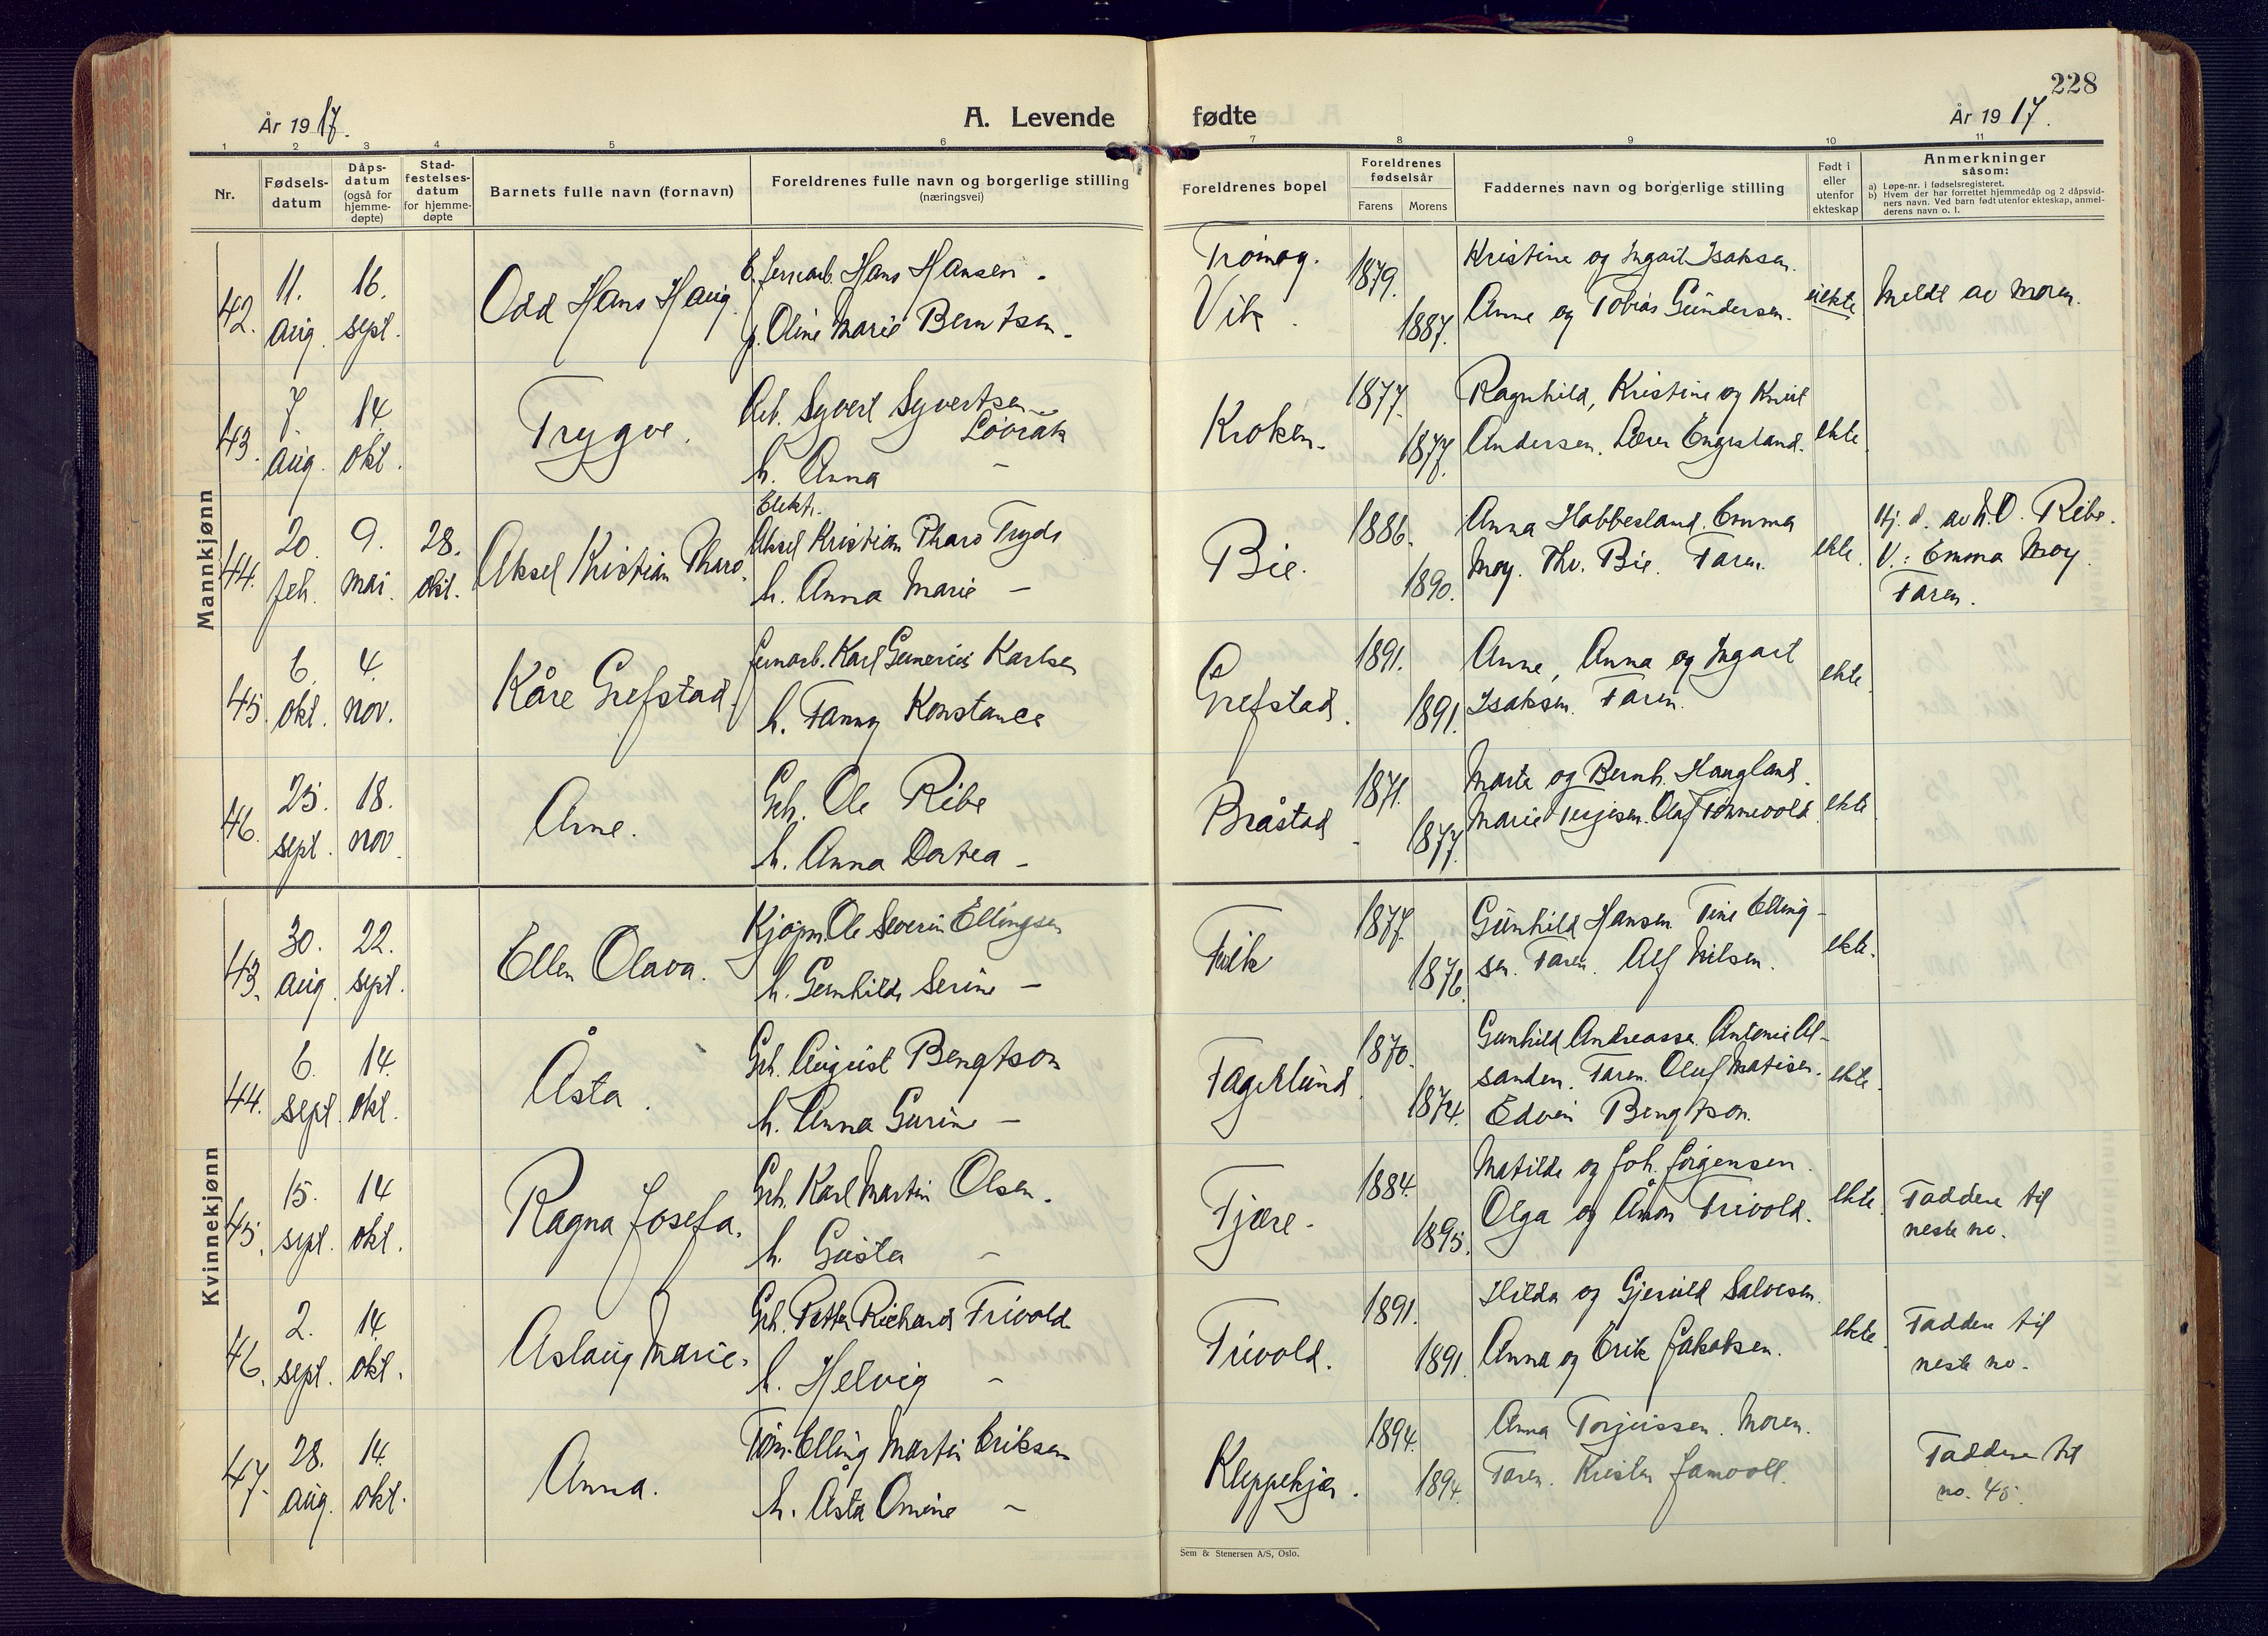 228
År 1917.
A. Levende fødte
År 1917.
1 2 3 4 5 6 7 8 9 10 11
Nr.
Fødsels-
datum
Dåps-
datum
(også for
hjemme-
døpte)
Stad-
festelses-
datum
for hjemme-
døpte
Barnets fulle navn (fornavn)
Foreldrenes fulle navn og borgerlige stilling
(næringsvei)
Foreldrenes bopel
Foreldrenes
fødselsår
Farens Morens
Faddernes navn og borgerlige stilling
Født i
eller
utenfor
ekteskap
Anmerkninger
såsom:
a) Løpe-nr. i fødselsregisteret.
b) Hvem der har forrettet hjemmedåp og 2 dåpsvid-
ners navn. Ved barn født utenfor ekteskap, anmel-
derens navn o. l.
Mannkjønn
42.
11.
aug.
16.
sept.
Odd Hans Haug
Hans Hansen
Oline Marie Berntsen
Tromøy.
Vik.
1879.
1887.
Kristine og Ingart Isaksen.
Anne og Tobias Gundersen.
uekte
Meldt av moren.
43.
7.
aug.
14.
okt.
Trygve.
Arb. Syvert Syvertsen
Løvrak
h. Anna -
Kroken.
1877.
1877.
Ragnhild, Kristine og Knut
Andersen. Lærer Engesland.
ekte.
44.
20.
feb.
9.
mai.
28.
okt.
Aksel Kristian Pharo.
Elektr.
Aksel Kristian Pharo
h. Anna Marie -
Bie.
1886.
1890.
Anna Habbesland. Emma
Moy. Thv. Bie. Faren.
ekte.
Hj. d. av Ribe.
V.: Emma Moy.
Faren.
45.
6.
okt.
4.
nov.
Kåre Grefstad.
Jernarb. Karl Karlsen
h. Fanny Konstance
Grefstad.
1891.
1891.
Anne, Anna og Ingart
Isaksen. Faren.
ekte.
46.
25.
sept.
18.
nov.
Arne.
Gb. Ole Ribe
h. Anna Dortea -
Bråstad
1871.
1877.
Marte og Bernh. Haugland.
Marie Terjesen. Olaf Tønnevold.
ekte.
Kvinnekjønn
43.
30.
aug.
22.
sept.
Ellen Olava.
Kjøpm. Ole Severin Ellingsen
h. Gunhild Serine -
Fevik
1877.
1876.
Gunhild Hansen. Tine Elling-
sen. Faren. Alf Nilsen.
ekte.
44.
6.
sept.
14.
okt.
Åsta.
Gb. August Bengtson
h. Anna Gurine -
Fagerlund.
1870.
1874.
Gunhild Andreassen. Antonie Al-
sanden. Faren. Oluf Matisen.
Edvin Bengtson.
ekte.
45.
15.
sept.
14
okt.
Ragna Josefa.
Gb. Karl Martin Olsen.
h. Gusta -
Fjære.
1884.
1895.
Matilde og Joh. Jørgensen.
Olga og Åmon Frivold.
ekte.
Faddere til
neste no.
46.
2.
sept.
14.
okt.
Aslaug Marie.
Gb. Petter Richard Frivold
h. Helvig -
Frivold.
1891.
1891.
Hilda og Gjeruld Salvesen.
Anna og Erik Jakobsen.
ekte.
Faddere til
neste no.
47.
28.
aug.
14.
okt.
Anna.
Tøm. Elling Martin Eriksen
h. Åsta Omine -
Kleppekjær.
1894.
1894.
Anna Torjussen. Moren.
Faren. Kristen Jamvoll.
Faddere til
no. 45.
Sem & Stenersen A/S, Oslo.